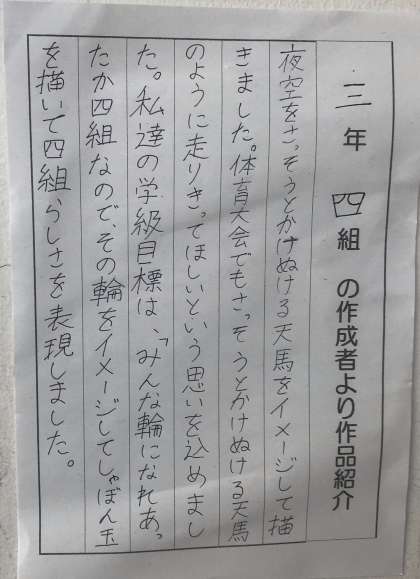 三年 四組 の作成者より作品紹介
夜空をさっそうとかけぬける天馬をイメージして描
きました。体育大会でもさっそうとかけぬける天馬
のように走りきってほしいという思いを込めまし
た。私達の学級目標は、「みんな輪になれあっ
たか四組なので、その輪をイメージしてしゃぼん玉
を描いて四組らしさを表現しました。